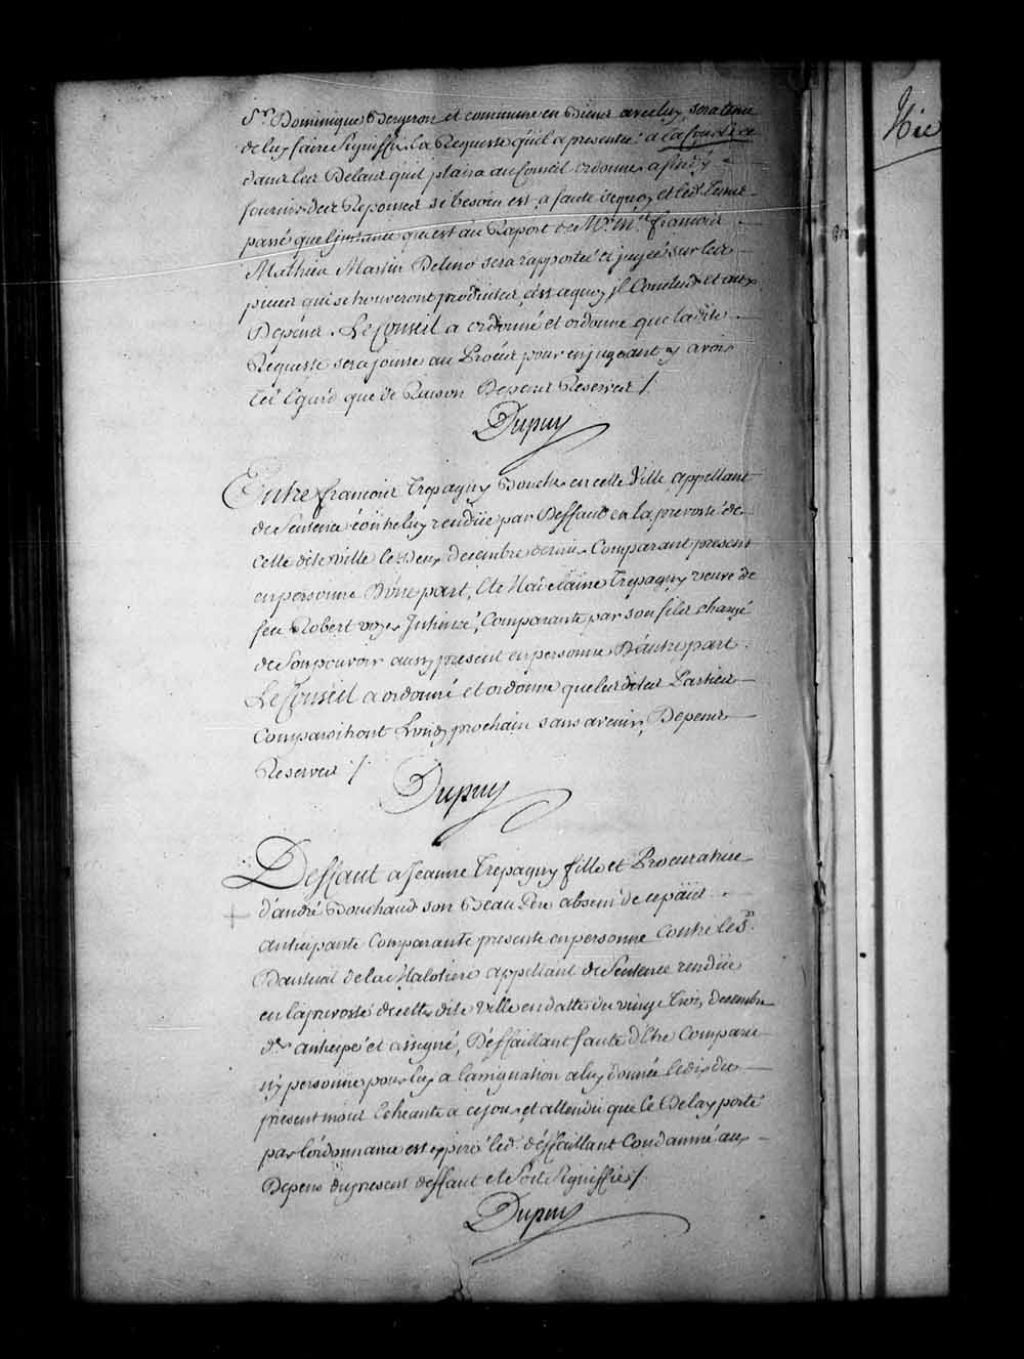 Sr. Dominique Bergeron et commune en Biens avec luy, sera tenu
de luy faire Signiffier la Requeste qu'il a presentée a la Cour et ce
dans les Delais quil plaira au Conseil ordonner afin d'y
fournir des Reponses si besoin est, a faute dequoy et led. tems
passé que l'instance qui est au Raport de Me. Me. françois
Mathieu Martin Delino sera rapportée et jugée sur les
pieces qui se trouveront produites, c'est a quoy il Conclud et aux
Depens. Le Conseil a ordonné et ordonne que ladite
Requeste sera jointe au Procés pour en jugeant y avoir
tel Egard que de Raison Depens Reservez /.
Dupuy
Entre françois Trepagny Boucher en cette Ville appellant
de Sentence contre luy rendüe par Deffaut en la prevosté de
cette dite ville le Deux decembre dernier Comparant present
en personne D'une part, Et Madelaine Trepagny veuve de
feu Robert voyer Intimée, Comparante par son fils chargé
de Son pouvoir aussy present en personne D'autre part
Le Conseil a ordonné et ordonne que les dites Parties
Comparoitront Lundy prochain sans avenir, Depens
Reservez /.
Dupuy
Deffaut a Jeanne Trepagny fille et Procuratrice
d'andré Bouchaud son Beau Pere absent de ce païs
anticipante Comparante presente en personne Contre le Sr.
Dauteuil de la Malotiere appellant de Sentence rendüe
en la prevosté de cette dite Ville en datte du vingt Trois decembre
der. anticipé et assigné, Deffaillant faute d'Etre Comparu
ny personne pour luy a l'assignation a luy donnée le dix du
present mois Echeante a ce jour et attendu que le Delay porté
par l'ordonnance est expiré led. deffaillant Condamné aux
Depens du present deffaut et Soit Signiffié /.
Dupuy